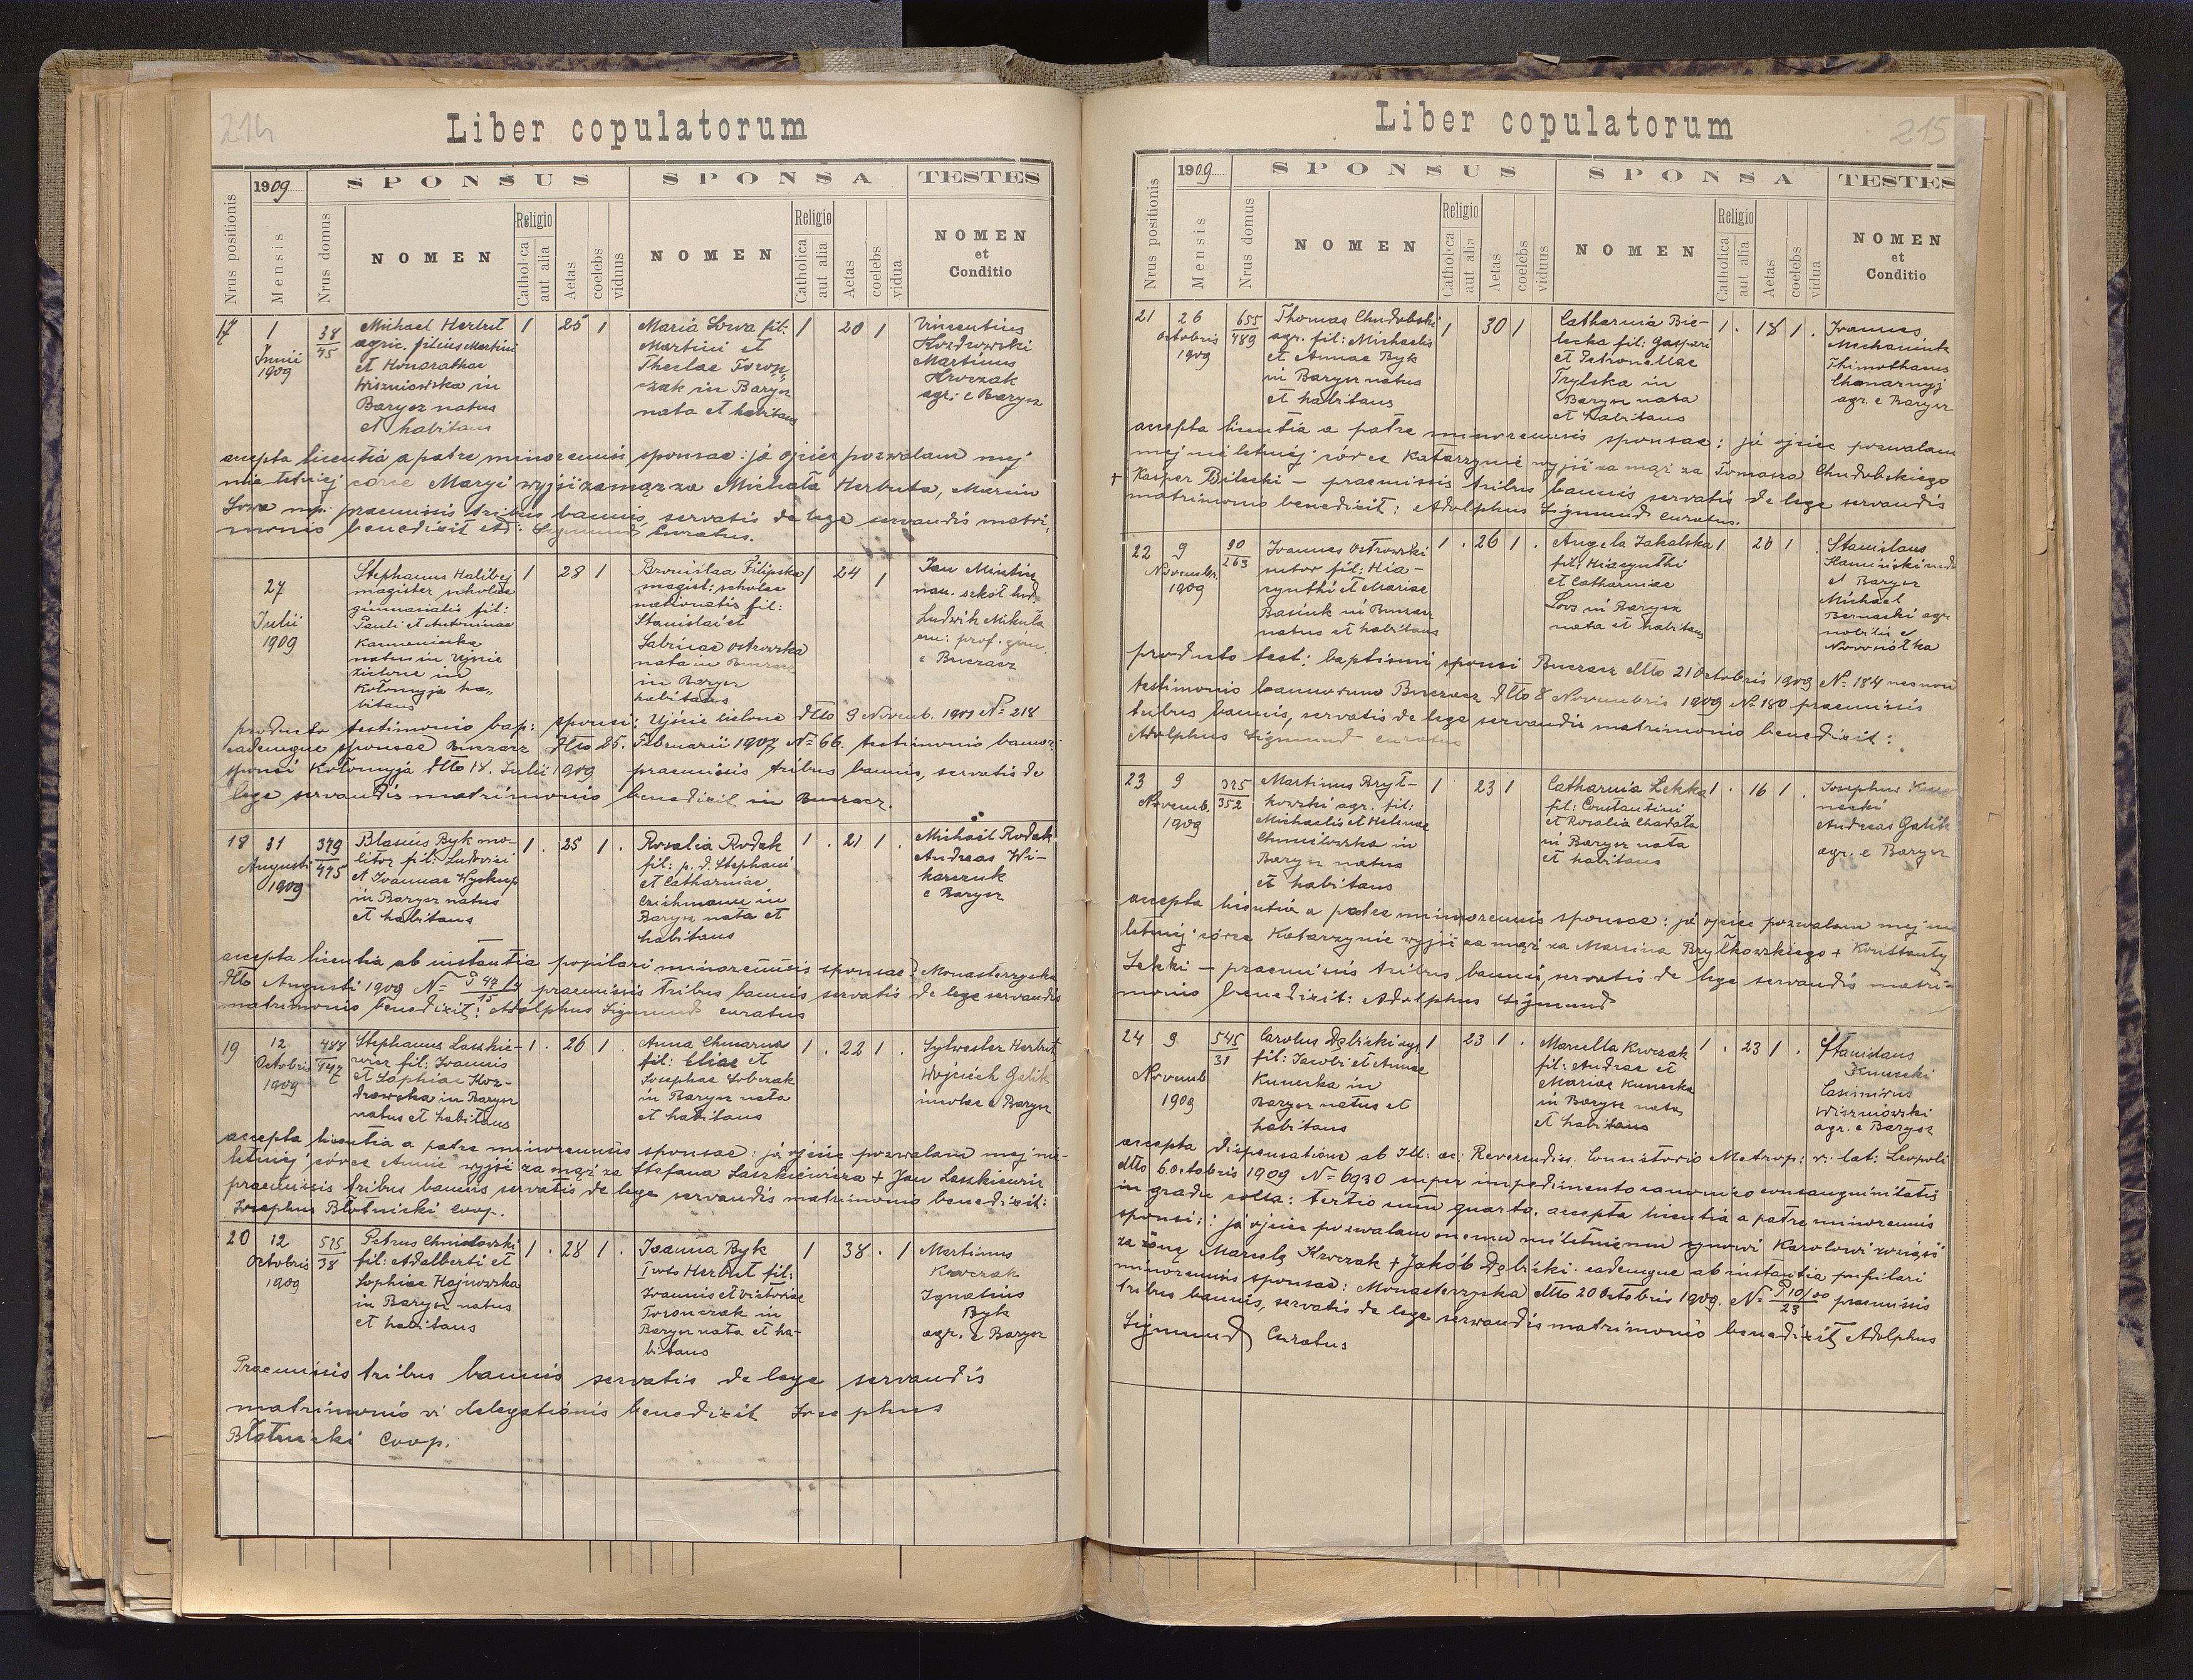 214
Liber copulatorum
1909
SPONSUS
SPONSA
TESTES
Nrus positionis
Mensis
Nrus domus
NOMEN
Religio
Catholica
aut alia
Aetas
coelebs
viduus
NOMEN
Religio
Catholica
aut alia
Aetas
coelebs
vidua
NOMEN
et
Conditio
17
1
Junii
1909
38
45
Michael Herbut
agric. filius Martini
et Honorathae
Wiszniowska in
Barysz natus
et habitans
1
25
1
Maria Sowa fil:
Martini et
Theclae Toron„
czak in Barysz
nata et habitans
1
20
1
Vincentius
Hozdrowski
Martinus
Krowczak
agr: e Barysz
accepta licentia a patre minorennis sponsae: ja ojciec pozwalam mej
nieletniej córce Maryi wyjść zamąż za Michała Herbuta, Marcin
Sowa mp. praemissis tribus bannis, servatis de lege servandis matri„
monio benedixit Ad: Sigmund Curatus.
27
Julii
1909
Stephanus Halibej
magister scholae
gimnasialis fil:
Pauli et Antoninae
Kamieniecka
natus in Ujście
zielone in
Kołomyja ha„
bitans
1
28
1
Bronislaa Filipska
magist: scholae
nationalis fil:
Stanislai et
Sabinae Ostrowska
nata in Buczacz
in Barysz
habitans
1
24
1
Jan
nau. szkół lud.
Ludwik Mikuła
em: prof. gim.
e Buczacz
producto testimonio bap: sponsi: Ujście zielone dtto 9 Novemb. 1901 N= 218
eademque sponsae Buczacz dtto 25. Februarii 1907 N= 66. testimonio bannor:
sponsi Kołomyja dtto 18. Julii 1909 praemissis tribus bannis, servatis de
lege servandis matrimonio benedixit in Buczacz.
18
31
Augusti
1909
379
475
Blasius Byk mo-
litor fil: Ludovici
et Joannae Wyskup
in Barysz natus
et habitans
1
25
1
Rosalia Rodak
fil: p. d. Stephani
et Catharinae
Czichmann in
Barysz nata et
habitans
1
21
1
Michael Rodak
Andreas Wi-
karczuk
e Barysz
accepta licentia ab instantia pupilari minorennis sponsae: Monasterzyska
dtto Augusti 1909 N= P 47/4 15 praemissis tribus bannis servatis de lege servandis
matrimonio benedixit: Adolphus Sigmund curatus
19
12
Octobris
1909
484
Stephanus Laszkie-
wicz fil: Joannis
et Sophiae Hoz-
drowska in Barysz
natus et habitans
1
26
1
Anna Chmarna
fil: Eliae et
Josephae Sobczak
in Barysz nata
et habitans
1
22
1
Sylwester Herbut
Wojciech Galik
incolae e Barysz
accepta licentia a patre minorennis sponsae: ja ojciec pozwalam mej nie-
letniej córce Annie wyjść za mąż za Stefana Laszkiewicza + Jan Laszkiewicz
praemissis tribus bannis servatis de lege servandis matrimonio benedixit:
Josephus Błotnicki coop.
20
12
Octobris
1909
38
Petrus Chmielowski
fil: Adalberti et
Sophiae Hajnowska
in Barysz natus
et habitans
1
28
1
Joanna Byk
I voto Herbut fil:
Joannis et Victoriae
Toronczak in
Barysz nata et ha-
bitans
1
38
1
Martinus
Krowczak
Ignatius
Byk
agr. e Barysz
Praemissis tribus bannis servatis de lege servandis
matrimonio vi delegationis benedixit Josephus
Błotnicki Coop.
215
Liber copulatorum
1909
SPONSUS
SPONSA
TESTES
Nrus positionis
Mensis
Nrus domus
NOMEN
Religio
Catholica
aut alia
Aetas
coelebs
viduus
NOMEN
Religio
Catholica
aut alia
Aetas
coelebs
vidua
NOMEN
et
Conditio
21
26
Octobris
1909
655
489
Thomas Chudobski
agr. fil: Michaelis
et Annae Byk
in Barysz natus
et habitans
1
30
1
Catharina Bie-
lecka fil: Gaspari
et Petronellae
Trylska in
Barysz nata
et habitans
1
18
1
Joannes
Mechaniuk
Thimotheus
Chmarnyj
agr. e Barysz
accepta licentia a patre minorennis sponsae: ja ojciec pozwalam
mej nieletniej córce Katarzynie wyjść za mąż za Tomasza Chudobskiego
+ Kasper Bilecki — praemissis tribus bannis servatis de lege servandis
matrimonio benedixit: Adolphus Sigmund curatus.
22
9
Novembr.
1909
90
263
Joannes Ostrowski
sutor fil: Hia-
cynthi et Mariae
Basiuk in Buczacz
natus et habitans
1
26
1
Angela Zakalska
fil: Hiacynthi
et Catharinae
Łoos in Barysz
nata et habitans
1
20
1
Stanislaus
Kamiński
e Barysz
Michael
Biernacki agr.
nobilis e
Nowosiółka
producto test: baptismi sponsi Buczacz dtto 21 Octobris 1909 N= 184 necnon
testimonio bannorum Buczacz dtto 8 Novembris 1909 N= 180 praemissis
tribus bannis, servatis de lege servandis matrimonio benedixit:
Adolphus Sigmund curatus
23
9
Novemb.
1909
325
352
Martinus Brył-
kowski agr. fil:
Michaelis et Helenae
Chmielowska in
Barysz natus
et habitans
1
23
1
Catharina Lekka
fil: Constantini
et Rosalia Charata
in Barysz nata
et habitans
1
16
1
Josephus
Andreas Galik
agr. e Barysz
accepta licentia a patre minorennis sponsae: ja ojciec pozwalam mej nie
letniej córce Katarzynie wyjść za mąż za Marcina Bryłkowskiego + Konstanty
Lekki — praemissis tribus bannis, servatis de lege servandis matri-
monio benedixit: Adolphus Sigmund
24
9
Novemb
1909
545
31
Carolus Dębicki agr
fil: Jacobi et Annae
Kunecka in
Barysz natus et
habitans
1
23
1
Marcella Krowczak
fil: Andreae et
Mariae Kunecka
in Barysz nata
et habitans
1
23
1
Stanislaus
Kunecki
Casimirus
Wiszniowski
agr. e Barysz
accepta dispensatione ab Ill: ac: Reverendis. Consistorio Metrop: r: lat: Leopoli
dtto 6 Octobris 1909 N= 6930 super impedimento canonico consanguinitatis
in gradu colla: tertio quarto. accepta licentia a patre minorennis
sponsi: : ja ojciec pozwalam memu nieletniemu synowi Karolowi wziąść
za żonę Marcelę Krowczak + Jakób Dębicki. eademque ab instantia pupilari
minorennis sponsae: Monasterzyska dtto 20 Octobris 1909. N= P 101/00 23 praemissis
tribus bannis, servatis de lege servandis matrimonio benedixit Adolphus
Sigmund Curatus